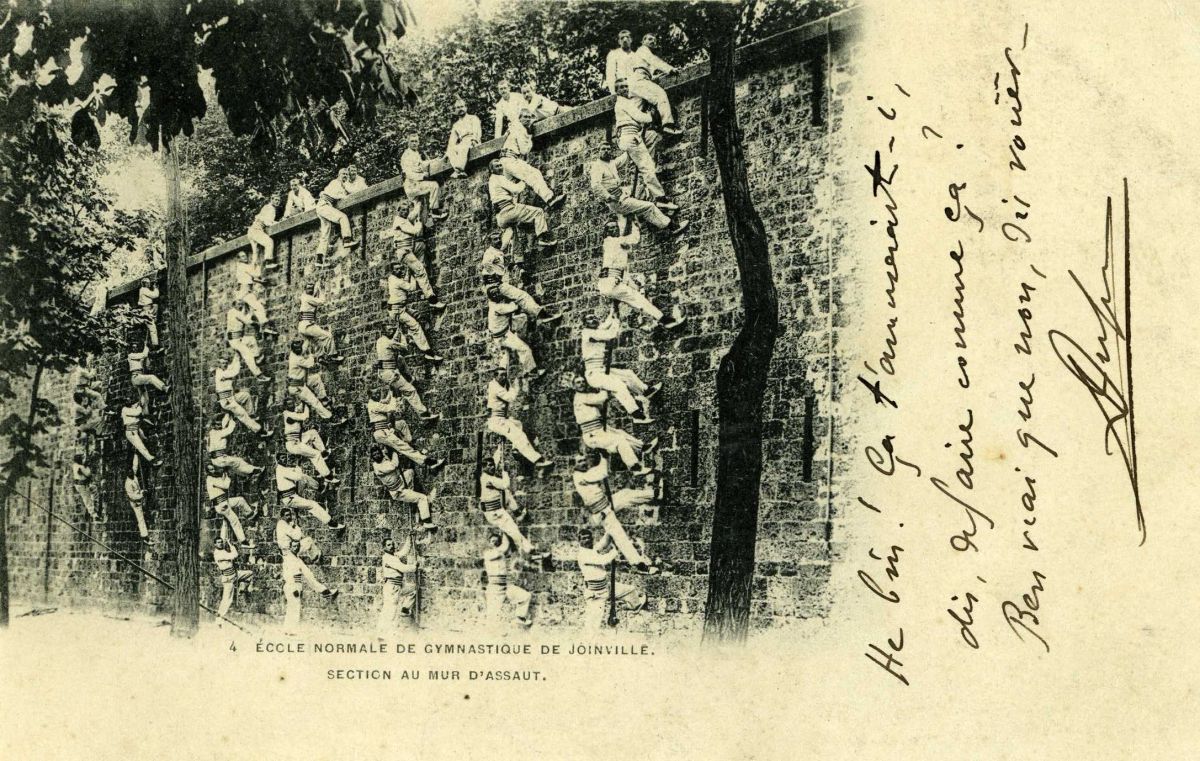 4 ÉCOLE NORMALE DE GYMNASTIQUE DE JOINVILLE.
SECTION AU MUR D'ASSAUT.
He bin! Ça t'amuserait-i,
dis, de faire comme ça?
Ben vrai que non, dis vouèr-